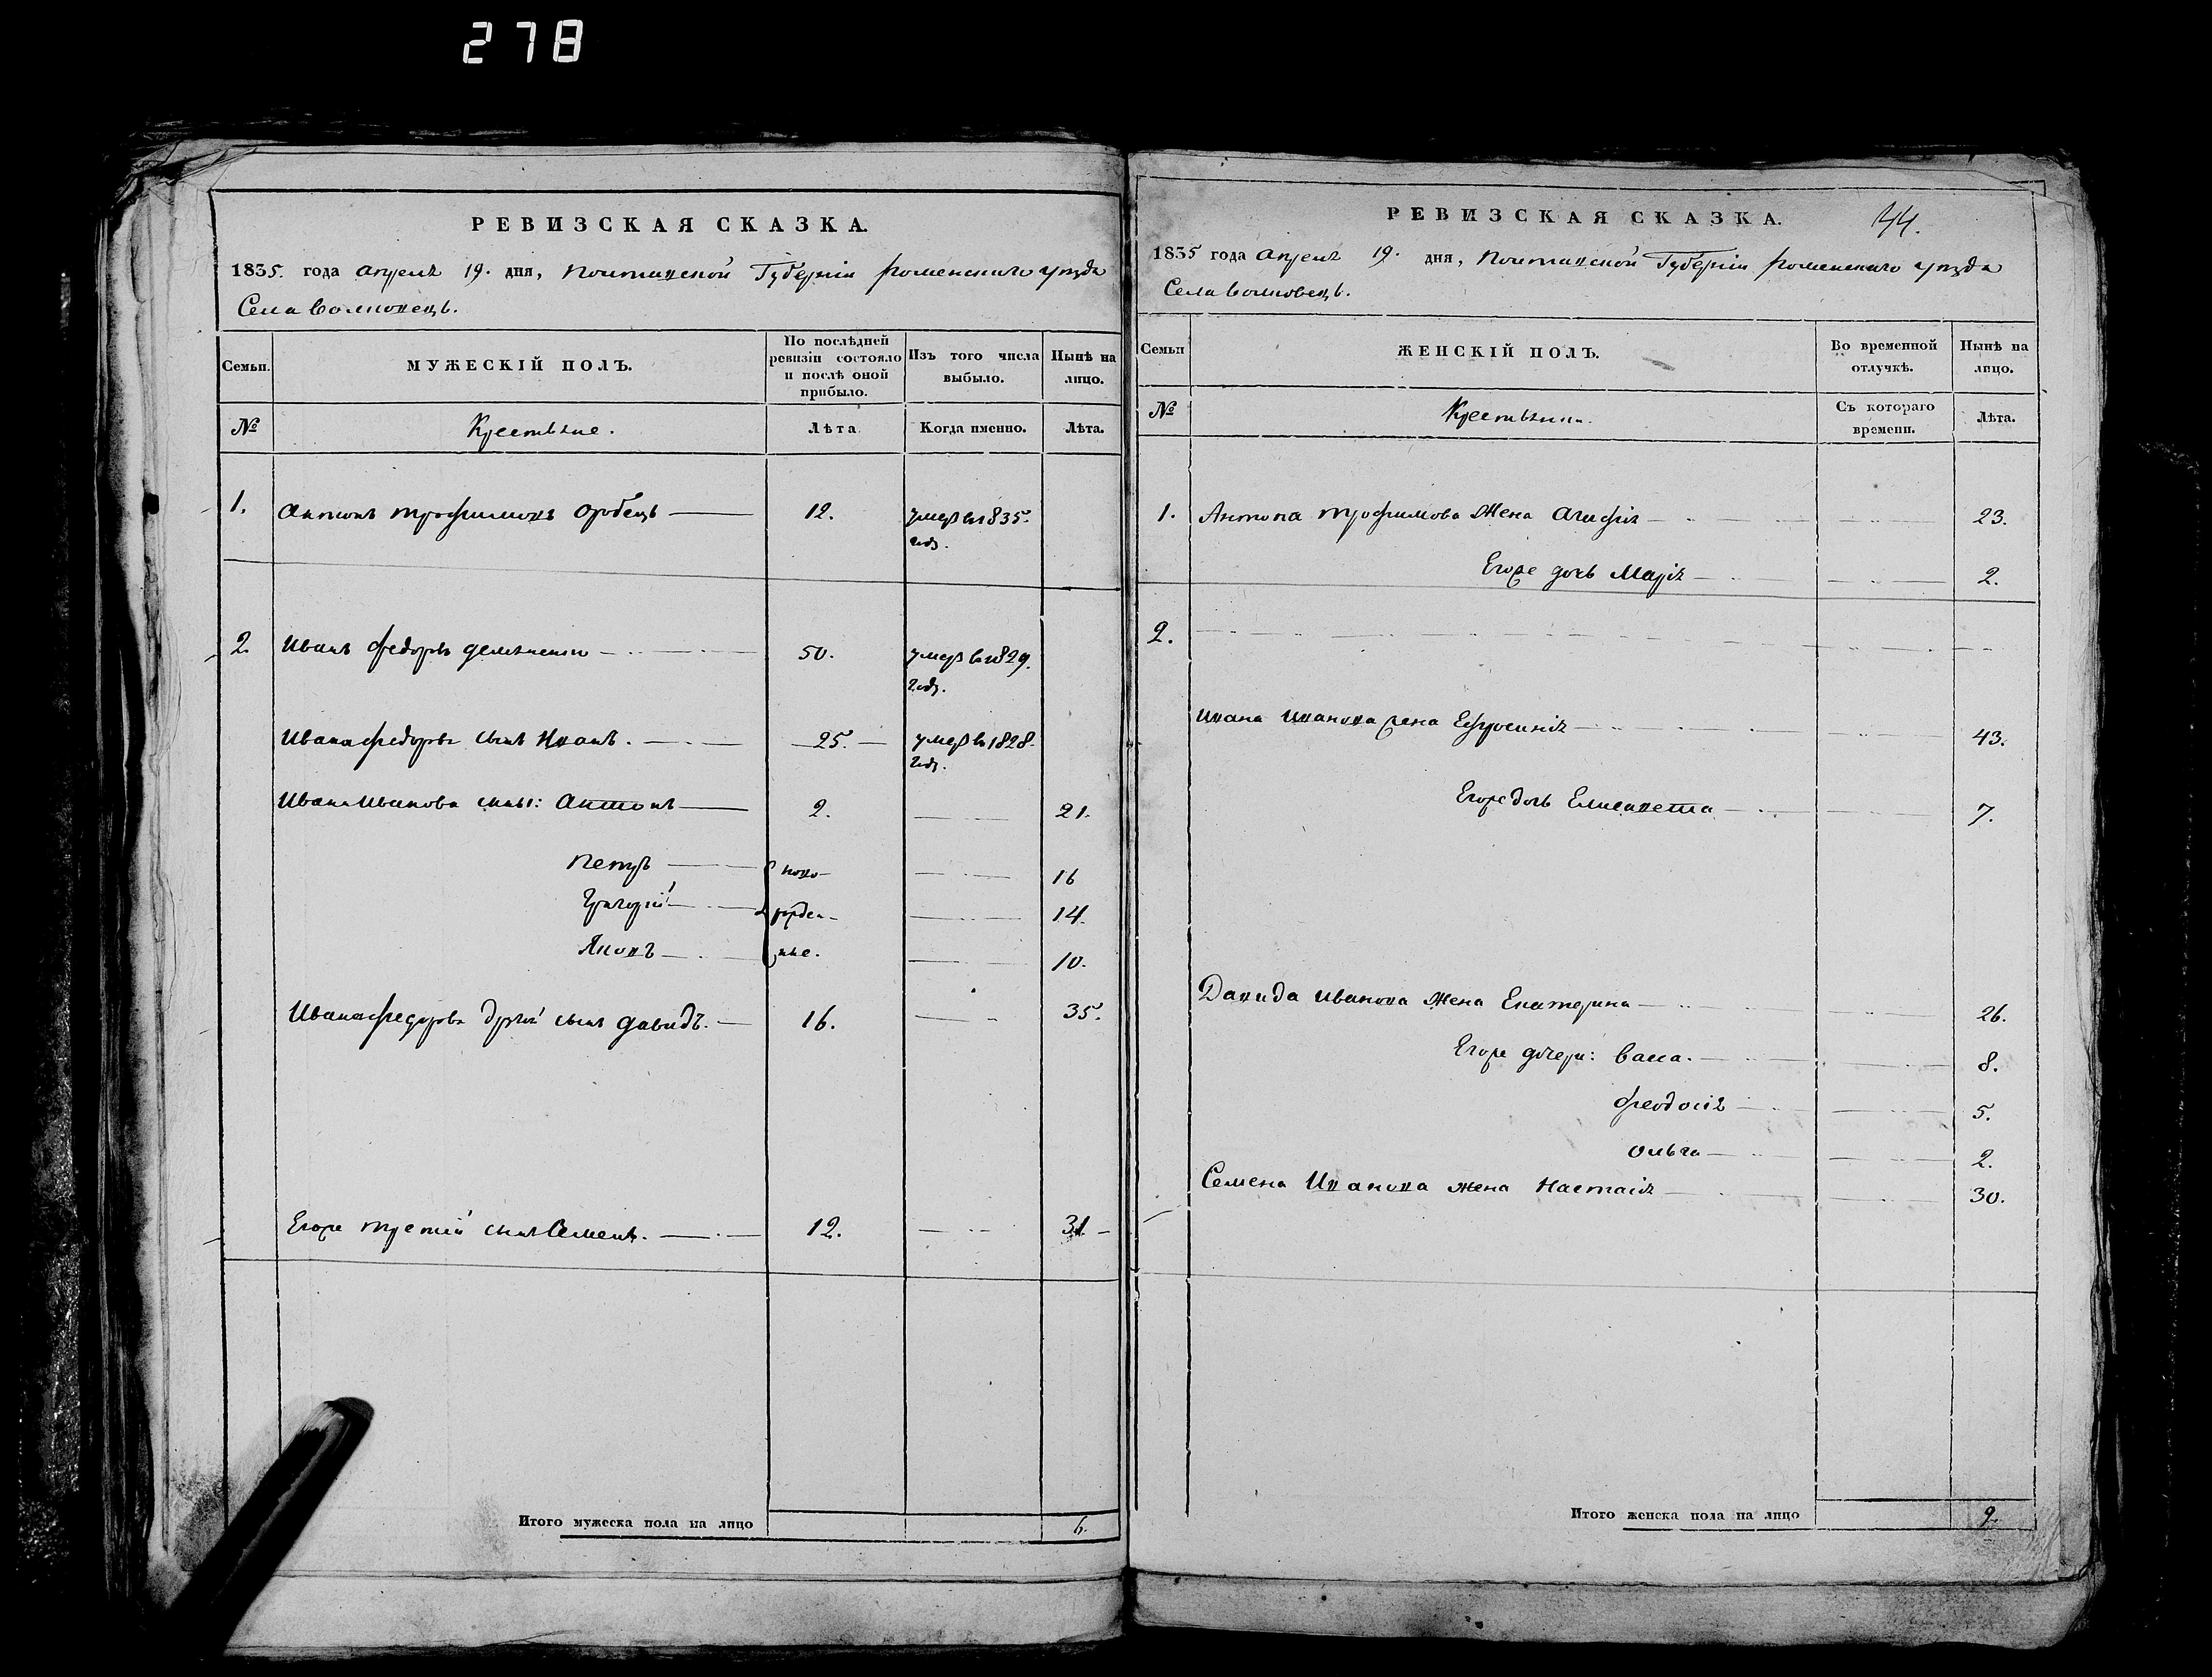 278
РЕВИЗСКАЯ СКАЗКА.
1835. года апреля 19. дня, Полтавской Губерніи роменскаго уезда
Села Волковецъ.
Семьи.
МУЖЕСКІЙ ПОЛЪ.
По послѣдней ревизіи состояло и послѣ оной прибыло.
Изъ того числа выбыло.
Нынѣ на лицо.
№
Крестьяне.
Лѣта
Когда именно.
Лѣта.
1. Антонъ трофимовъ 12. умер в 1835.
году.
2. Иванъ федоровъ 50. умер в 1829.
году.
Ивана федорова сынъ Иванъ. 25. умер в 1828.
году.
Ивана Иванова сыны: Антонъ 2. 21.
Петръ ново- 16
Григорій рожден- 14.
Яковъ ные. 10.
Ивана федорова другой сынъ Давидъ. 16. 35.
Егоже третій сынъ Семенъ. 12. 31
Итого мужеска пола на лицо 6.
РЕВИЗСКАЯ СКАЗКА. 44.
1835 года апреля 19. дня, Полтавской Губерніи роменскаго уезда
Села Волковецъ.
Семьи
ЖЕНСКІЙ ПОЛЪ.
Во временной отлучкѣ.
Нынѣ на лицо.
№
Крестьянки.
Съ котораго времени.
Лѣта.
1. Антона трофимова Жена Агафія 23.
Егоже дочь Марія 2.
2.
Ивана Иванова жена Ефросинія 43.
Егоже дочь Елисавета 7.
Давида Иванова Жена Екатерина 26.
Егоже дочери: Васса. 8.
Феодосія 5.
Ольга 2.
Семена Иванова жена Настасія 30.
Итого женска пола на лицо 9.